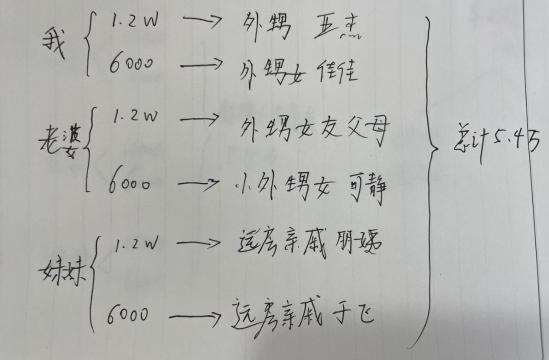 我 1.2W → 外甥 亚杰
6000 → 外甥女 佳佳
老婆 1.2W → 外甥女友父母
6000 → 小外甥女 可静
妹妹 1.2W → 远房亲戚 朋
6000 → 远房亲戚 于飞
总计5.4万